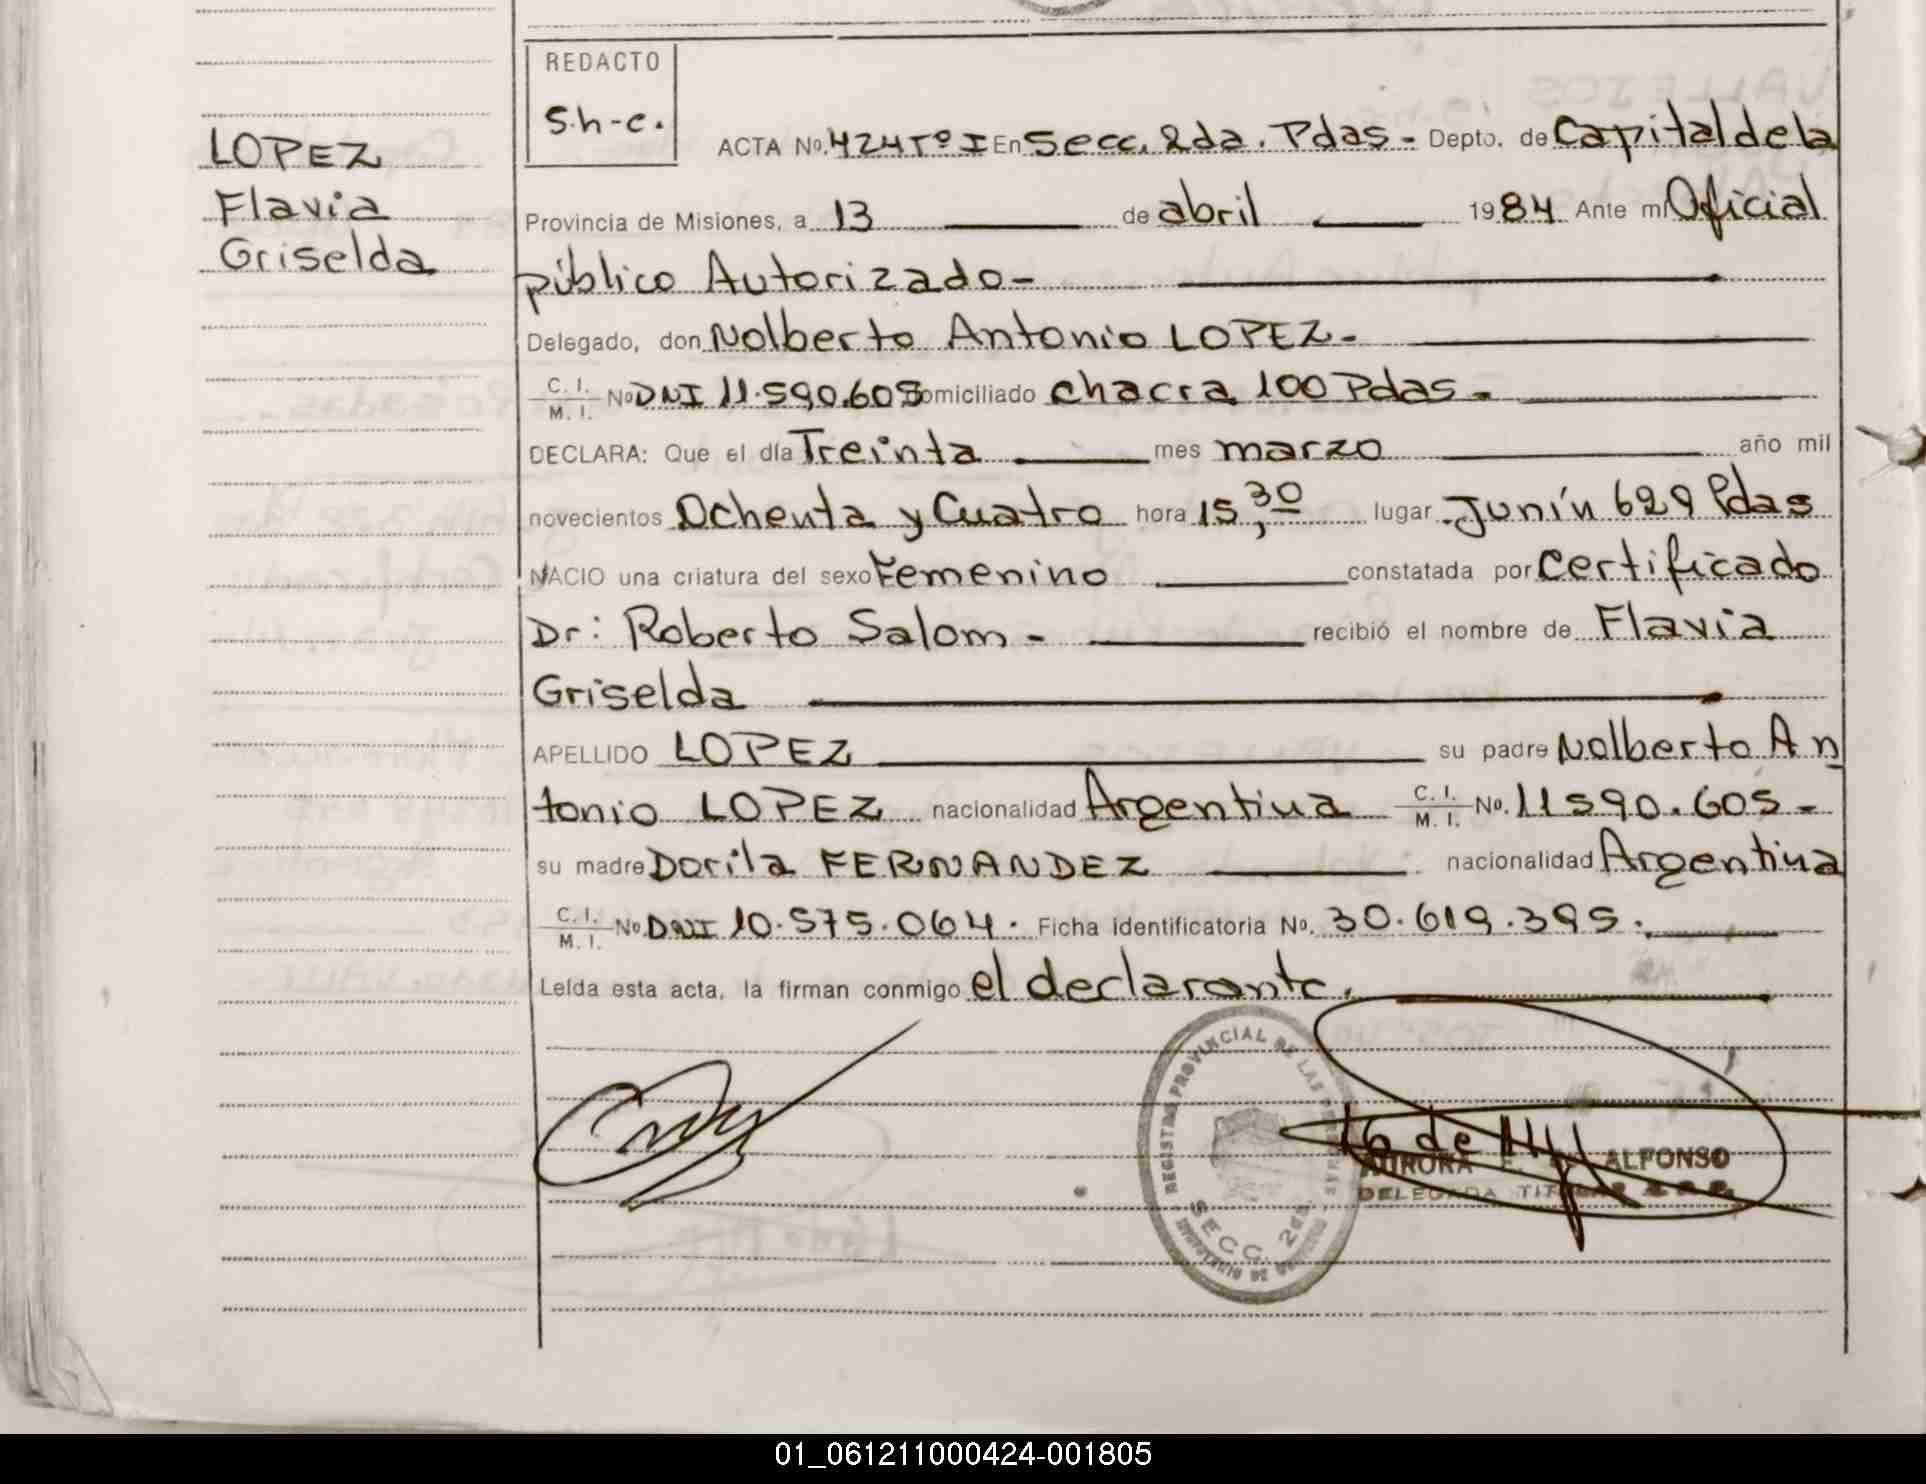 REDACTO
S.h-c.
LOPEZ
Flavia
Griselda
ACTA No. 424 Tº I En Secc. 2da. Pdas - Depto. de Capital de la
Provincia de Misiones, a 13 de abril 1984 Ante mí Oficial
público Autorizado-
Delegado, don Nolberto Antonio LOPEZ-
C. I. M. I. No DNI 11.590.605 omiciliado chacra 100 Pdas.
DECLARA: Que el día Treinta mes marzo año mil
novecientos Ochenta y Cuatro hora 15,30 lugar Junín 629 Pdas
NACIO una criatura del sexo Femenino constatada por Certificado
Dr: Roberto Salom - recibió el nombre de Flavia
Griselda
APELLIDO LOPEZ su padre Nolberto An
tonio LOPEZ nacionalidad Argentina C. I. M. I. No. 11590.605-
su madre Dorila FERNANDEZ nacionalidad Argentina
C. I. M. I. No. DNI 10.575.064. Ficha identificatoria No. 30.619.395.
Leída esta acta, la firman conmigo el declarante.
REGISTRO PROVINCIAL DE LAS
SECC. 2da.
AURORA E. ALFONSO
DELEGADA
01_061211000424-001805